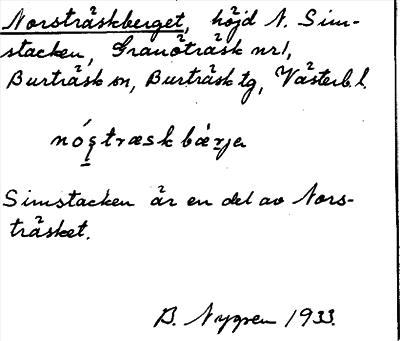 Norsträskberget, höjd N. Sim-
stacken, Granöträsk nr 1,
Burträsk sn, Burträsk tg, Västerb. l.
Simstacken är en del av Nors-
träsket.
B. Nygren 1933.